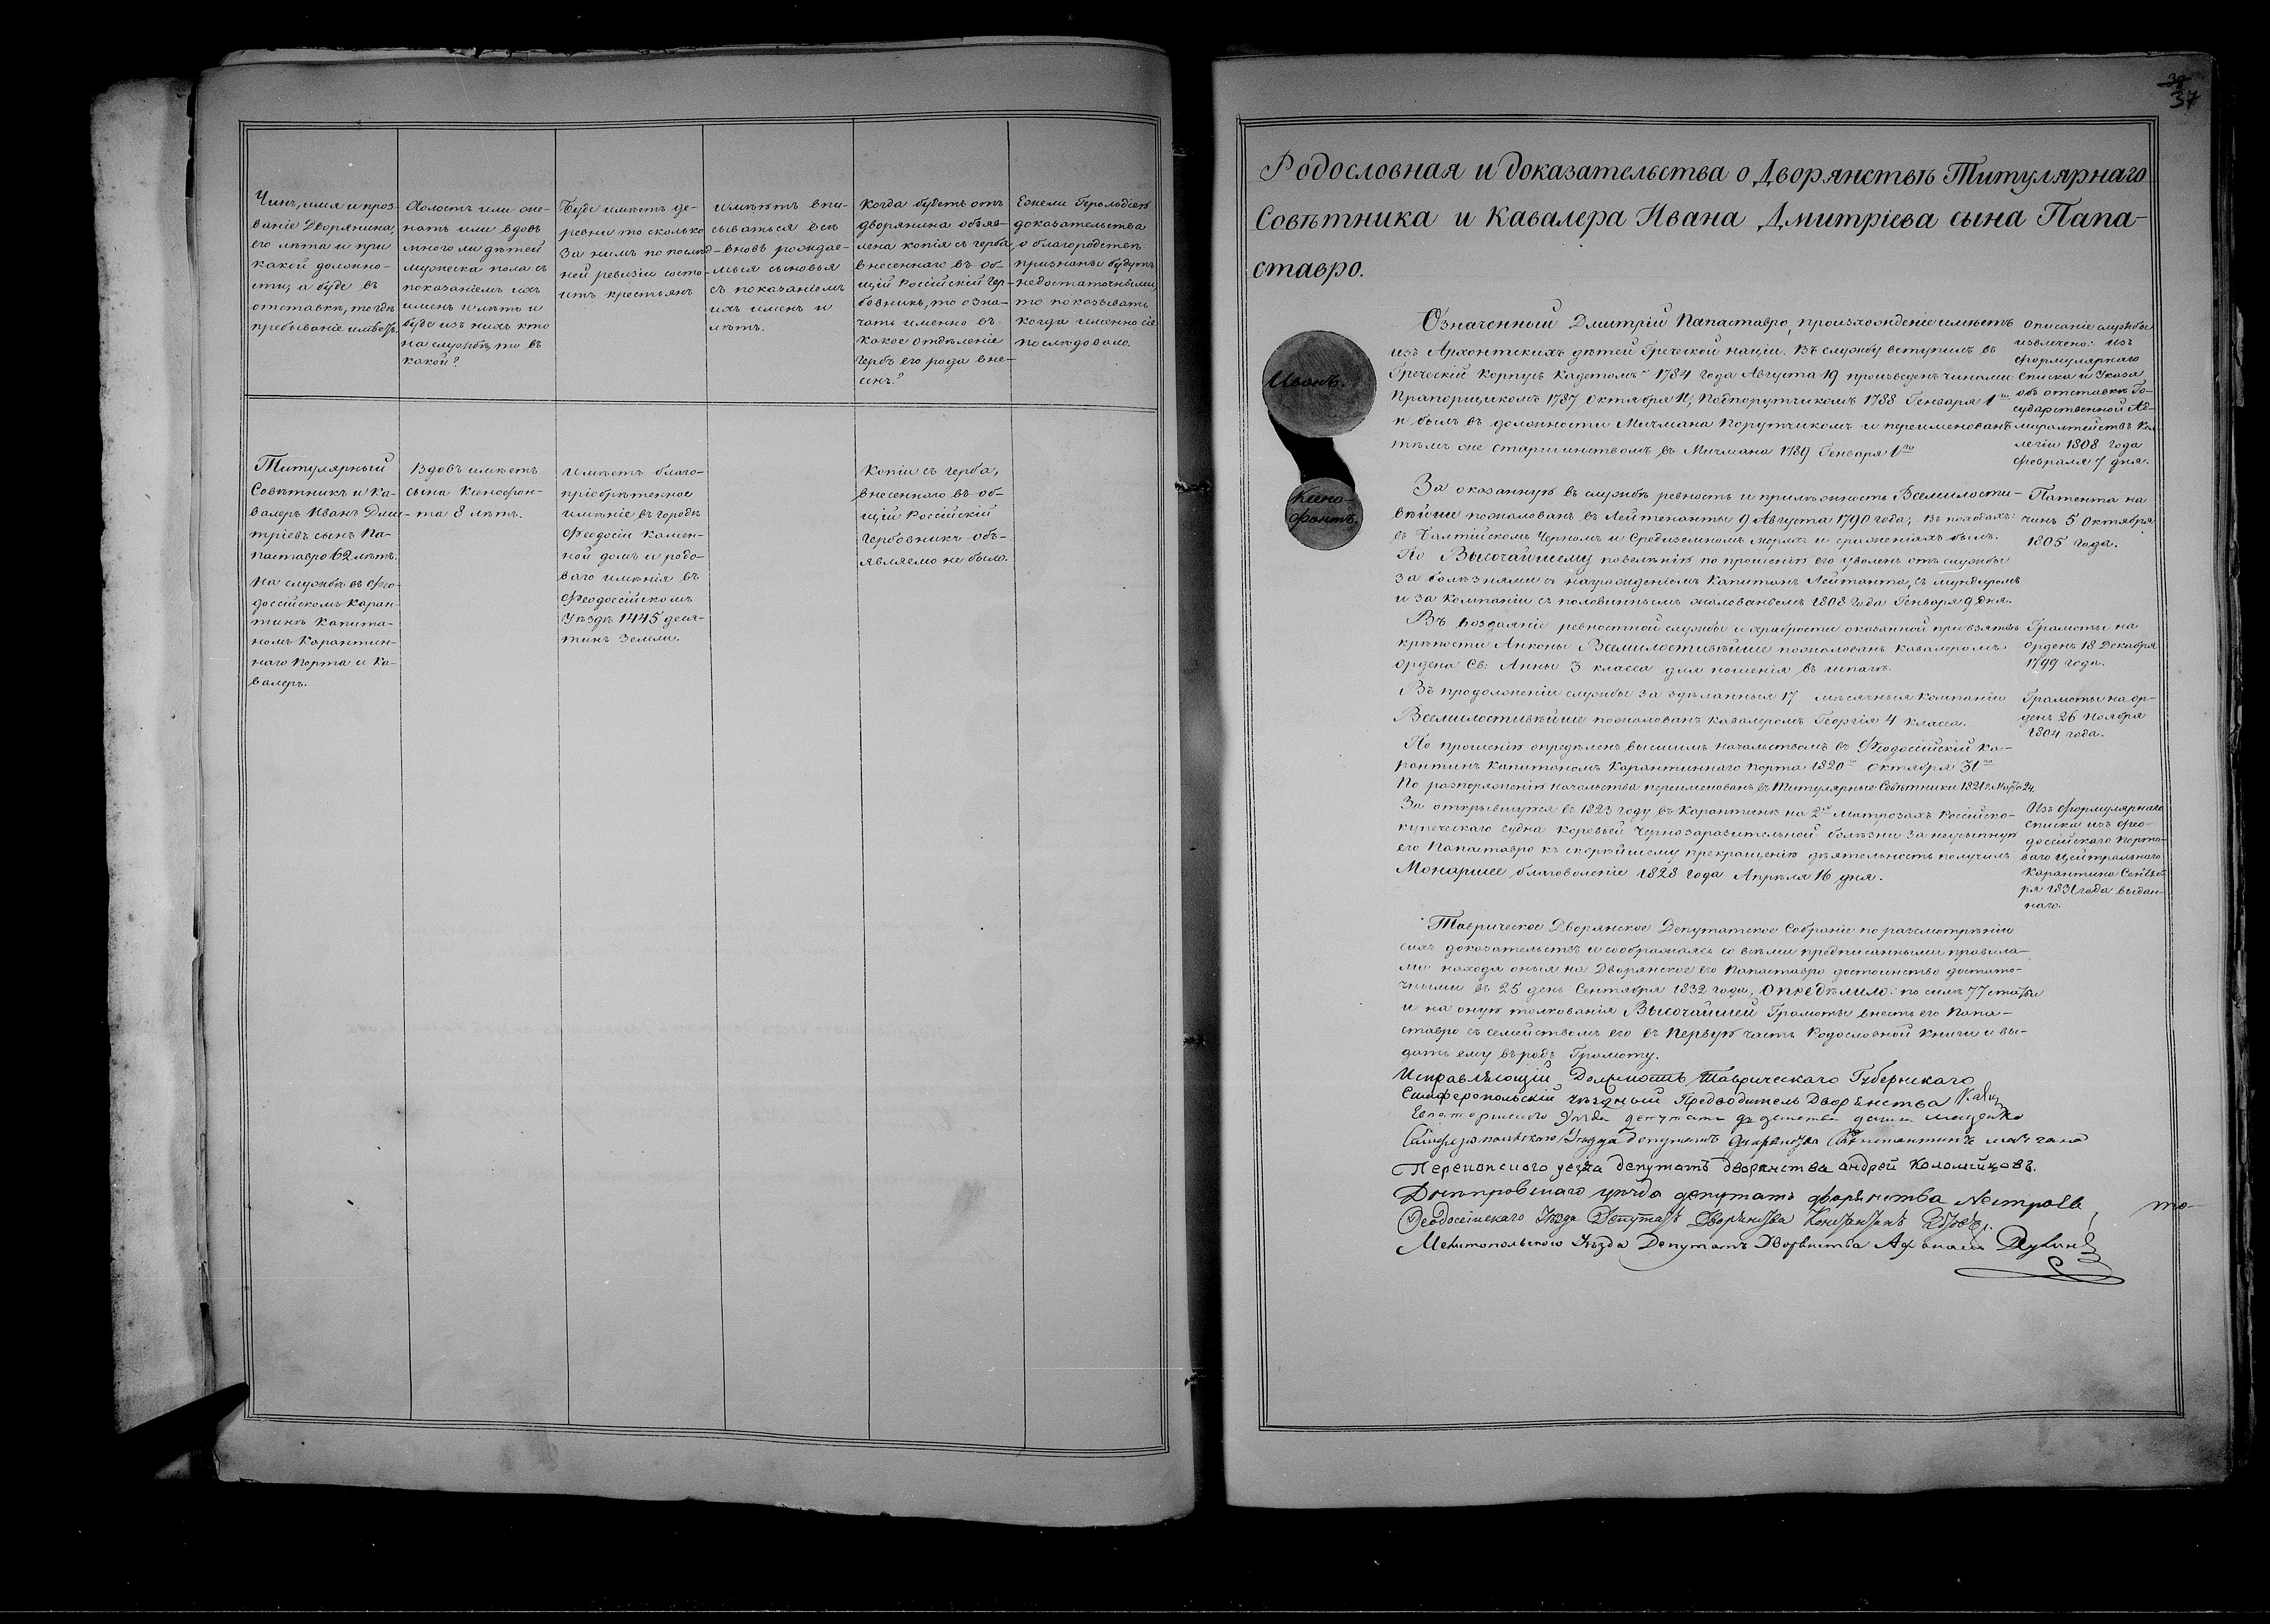 Чинъ, имя и проз-
ваніе Дворянина,
его лѣта и при
какой должно-
сти, а буде въ
отставкѣ, то гдѣ
пребываніе имѣетъ.
Холостъ или же-
натъ или вдовъ
много ли дѣтей
мужеска пола съ
показаніемъ ихъ
именъ и лѣтъ и
буде изъ нихъ кто
на службѣ, то въ
какой?
Буде имѣетъ де-
ревни то сколько
за нимъ по послѣд-
ней ревизіи состо-
итъ крестьянъ
имѣютъ впи-
сываться всѣ
вновь рождае-
мыя сыновья
съ показаніемъ
ихъ именъ и
лѣтъ.
Когда будетъ отъ
дворянина объяв-
лена копія съ герба,
внесеннаго въ об-
щій Россійскій Гер-
бовникъ, то озна-
чать именно въ
какое отдѣленіе
гербъ его рода вне-
сенъ?
Ежели Герольдіею
доказательства
о благородствѣ
признаны будутъ
недостаточными
то показывать
когда именно сіе
послѣдовало.
Титулярный
Совѣтникъ и Ка-
валеръ Иванъ Дми-
тріевъ сынъ Па-
паставро 62 лѣтъ.
На службѣ въ Ѳео-
досійскомъ Каран-
тинѣ Капита-
номъ Карантин-
наго Порта и Ка-
валеръ.
Вдовъ имѣетъ
сына Ксенофон-
та 8 лѣтъ.
Имѣетъ благо-
пріобрѣтенное
имѣніе въ городѣ
Ѳеодосіи камен-
ной домъ и родо-
ваго имѣнія въ
Ѳеодосійскомъ
Уѣздѣ 1445 деся-
тинъ земли.
Копіи съ герба,
внесеннаго въ об-
щій Россійскій
Гербовникъ объ-
являемо не было.
37
Родословная и доказательства о Дворянствѣ Титулярнаго
Совѣтника и Кавалера Ивана Дмитріева сына Папа-
ставро.
Иванъ.
Ксено-
фонтъ.
Означенный Дмитрій Папаставро, произхожденіе имѣетъ
изъ Архонтскихъ дѣтей Греческой націи. Въ службу вступилъ въ
Греческій Корпусъ Кадетомъ 1784 года Августа 19 произведенъ чинами
Прапорщикомъ 1787 Октября 11, Подпорутчикомъ 1788 Генваря 1го
и былъ въ должности Мичмана Порутчикомъ и переименованъ
тѣмъ же старшинствомъ въ Мичмана 1789 Генваря 1го
Описаніе службы
извлечено: изъ
формулярнаго
списка и Указа
объ отставкѣ Го-
сударственной Ад-
миралтействъ Кол-
легіи 1808 года
февраля 7 дня.
За оказанную въ службѣ ревность и прилѣжность Всемилости-
вѣйше пожалованъ въ Лейтенанты 9 Августа 1790 года; въ походахъ:
въ Балтійскомъ Черномъ и Средиземномъ моряхъ и сраженіяхъ былъ.
По Высочайшему повелѣнію по прошенію его уволенъ отъ службы
за болѣзнями съ награжденіемъ Капитанъ Лейтанта, съ мундиромъ
и за Компаніи съ половиннымъ жалованьемъ 1808 года Генваря 9 дня.
Патента на
чинъ 5 Октября
1805 года.
Въ воздаяніе ревностной службы и храбрости оказанной при взятіи
крѣпости Анконы Всемилостивѣйше пожалованъ кавалеромъ
ордена Св: Анны 3 класса для ношенія въ шпагѣ.
Грамоты на
орденъ 18 Декабря
1799 года.
Въ продолженіи службы за здѣланныя 17 мѣсячныя компаніи
Всемилостивѣйше пожалованъ кавалеромъ Георгія 4 класса.
Грамоты на ор-
денъ 26 Ноября
1804 года.
По прошенію опредѣленъ высшимъ начальствомъ въ Ѳеодосійскій Ка-
рантинъ Капитаномъ Карантиннаго Порта 1820 Октября 31го
По разпоряженію начальства переименованъ въ Титулярные Совѣтники 1821 г. Марта 24.
За открывшуюся въ 1823 году въ Карантинѣ на 2хъ матрозахъ Россійско-
купеческаго судна коровьей чернозаразительной болѣзни за неусыпную
его Папаставро къ скорѣйшему прекращенію дѣятельность получилъ
Монаршее благоволеніе 1828 года Апрѣля 16 дня.
Изъ формулярнаго
списка изъ Ѳео-
досійскаго Порто-
ваго Центральнаго
Карантина Сентяб-
ря 1831 года выдан-
наго.
Таврическое Дворянское Депутатское Собраніе по разсмотрѣніи
сихъ доказательствъ и сообразжаясь со всѣми предписанными правила-
ми находя оныя на Дворянское его Папаставро достоинство достато-
чными въ 25 день Сентября 1832 года, Опредѣлило: по силѣ 77 статьи
и на оную толкованія Высочайшей Грамоты внесть его Папа-
ставро съ семействомъ его въ Первую часть Родословной Книги и вы-
дать ему въ родъ Грамоту.
Исправляющій Должность Таврическаго Губернскаго
Симферопольскій уѣздный Предводитель Дворянства
Евпаторійскаго Уѣзда депутатъ
Симферопольскаго Уѣзда депутатъ Дворянства Константинъ
Перекопскаго уезда депутатъ дворянства андрей Коломійцовъ.
Днѣпровскаго уѣзда депутатъ дворянства
Ѳеодосійскаго Уѣзда Депутатъ Дворянства Константинъ
Мелитопольскаго Уѣзда Депутатъ Дворянства